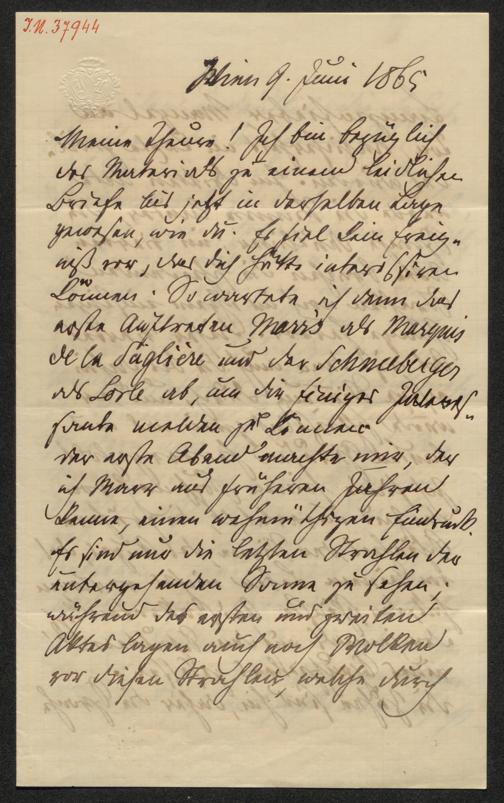 I.N. 37944
Wien 9. Juni 1865
Meine Theure! Ich bin bezüglich
des Materials zu einem leidlichen
Briefe bis jetzt in derselben Lage
gewesen, wie du. Es fiel kein Ereig-
niß vor, das dich hätte interessiren
können. So wartete ich denn das
erste Auftreten Marrs als Marquis
de la Seiglière und der Schneeberger
als Lorle ab, um dir einiges Interes-
sante melden zu können.
Der erste Abend machte mir, der
ich Marr aus früheren Jahren
kenne, einen wehmüthigen Eindruck.
Es sind nur die letzten Strahlen der
untergehenden Sonne zu sehen;
während des ersten und zweiten
Aktes lagen auch noch Wolken
vor diesen Strahlen, welche durch